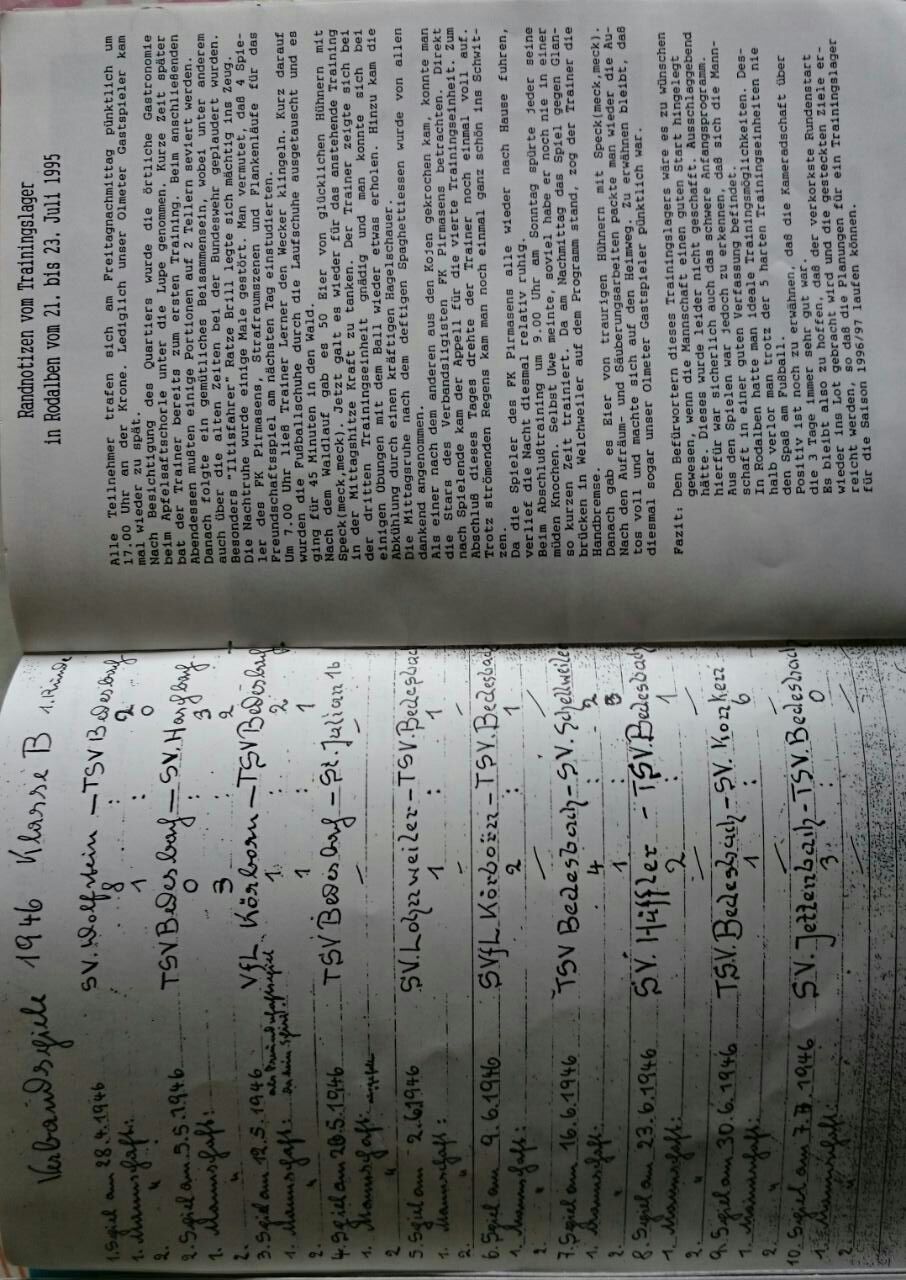 Verbandsspiele 1946 Klasse B 1. Runde
1. Spiel am 28.4.1946 SV. Wolfstein – TSV Bedesbach
1. Mannschaft: 8 : 2
2. " 1 : 0
2. Spiel am 5.5.1946 TSV Bedesbach – SV. Haschbach
1. Mannschaft: 0 : 3
2. " 3 : 2
3. Spiel am 12.5.1946 VfL Körborn – TSV Bedesbach
1. Mannschaft: 1 : 2
2. 1 : 1
4. Spiel am 5.1946 TSV Bedesbach – St. Julian 1b
1. Mannschaft: – –
2
5. Spiel am 2.6.1946 SV. Lohnweiler – TSV. Bedesbach
1. Mannschaft: 1 : 1
2. " – –
6. Spiel am 9.6.1946 SVfL. Körborn – TSV. Bedesbach
1. Mannschaft: 2 : 1
2. " – –
7. Spiel am 16.6.1946 TSV Bedesbach – SV. Schellweiler
1. Mannschaft: 4 : 2
2. " 1 :
8. Spiel am 23.6.1946 SV. Hüffler – TSV. Bedesbach
1. Mannschaft: 2 : 1
2. " – –
9. Spiel am 30.6.1946 TSV. Bedesbach – SV. Konken
1. Mannschaft: 1 : 6
2. " – –
10. Spiel am 7.7.1946 SV. Jettenbach – TSV. Bedesbach
1. Mannschaft: 3 : 0
2. " – –
Randnotizen vom Trainingslager
In Rodalben vom 21. bis 23. Juli 1995
Alle Teilnehmer trafen sich am Freitagnachmittag pünktlich um
17.00 Uhr an der Krone. Lediglich unser Olmeter Gastspieler kam
mal wieder zu spät.
Nach Besichtigung des Quartiers wurde die örtliche Gastronomie
beim Apfelsaftschorle unter die Lupe genommen. Kurze Zeit später
bat der Trainer bereits zum ersten Training. Beim anschließenden
Abendessen mußten einige Portionen auf 2 Tellern serviert werden.
Danach folgte ein gemütliches Beisammensein, wobei unter anderem
auch über die alten Zeiten bei der Bundeswehr geplaudert wurden.
Besonders "Iltisfahrer" Ratze Brill legte sich mächtig ins Zeug.
Die Nachtruhe wurde einige Male gestört. Man vermutet, daß 4 Spie-
ler des FK Pirmasens, Strafraumszenen und Flankenläufe für das
Freundschaftsspiel am nächsten Tag einstudierten.
Um 7.00 Uhr ließ Trainer Lerner den Wecker klingeln. Kurz darauf
wurden die Fußballschuhe durch die Laufschuhe ausgetauscht und es
ging für 45 Minuten in den Wald.
Nach dem Waldlauf gab es 50 Eier von glücklichen Hühnern mit
Speck(meck,meck). Jetzt galt es wieder für das anstehende Training
in der Mittagshitze Kraft zu tanken. Der Trainer zeigte sich bei
der dritten Trainingseinheit gnädig und man konnte sich bei
einigen Übungen mit dem Ball wieder etwas erholen. Hinzu kam die
Abkühlung durch einen kräftigen Hagelschauer.
Die Mittagsruhe nach dem deftigen Spaghettiessen wurde von allen
dankend angenommen.
Als einer nach dem anderen aus den Kojen gekrochen kam, konnte man
die Stars des Verbandsligisten FK Pirmasens betrachten. Direkt
nach Spielende kam der Appell für die vierte Trainingseinheit. Zum
Abschluß dieses Tages drehte der Trainer noch einmal voll auf.
Trotz strömenden Regens kam man noch einmal ganz schön ins Schwit-
zen.
Da die Spieler des FK Pirmasens alle wieder nach Hause fuhren,
verlief die Nacht diesmal relativ ruhig.
Beim Abschlußtraining um 9.00 Uhr am Sonntag spürte jeder seine
müden Knochen. Selbst Uwe meinte, soviel habe er noch nie in einer
so kurzen Zeit trainiert. Da am Nachmittag das Spiel gegen Glan-
brücken in Welchweiler auf dem Programm stand, zog der Trainer die
Handbremse.
Danach gab es Eier von traurigen Hühnern mit Speck(meck,meck).
Nach den Aufräum- und Säuberungsarbeiten packte man wieder die Au-
tos voll und machte sich auf den Heimweg. Zu erwähnen bleibt, daß
diesmal sogar unser Olmeter Gastspieler pünktlich war.
Fazit: Den Befürwortern dieses Trainingslagers wäre es zu wünschen
gewesen, wenn die Mannschaft einen guten Start hingelegt
hätte. Dieses wurde leider nicht geschafft. Ausschlaggebend
hierfür war sicherlich auch das schwere Anfangsprogramm.
Aus den Spielen war jedoch zu erkennen, daß sich die Mann-
schaft in einer guten Verfassung befindet.
In Rodalben hatte man ideale Trainingsmöglichkeiten. Des-
halb verlor man trotz der 5 harten Trainingseinheiten nie
den Spaß am Fußball.
Positiv ist noch zu erwähnen, daß die Kameradschaft über
die 3 Tage immer sehr gut war.
Es bleibt also zu hoffen, daß der verkorkste Rundenstart
wieder ins Lot gebracht wird und die gesteckten Ziele er-
reicht werden, so daß die Planungen für ein Trainingslager
für die Saison 1996/97 laufen können.